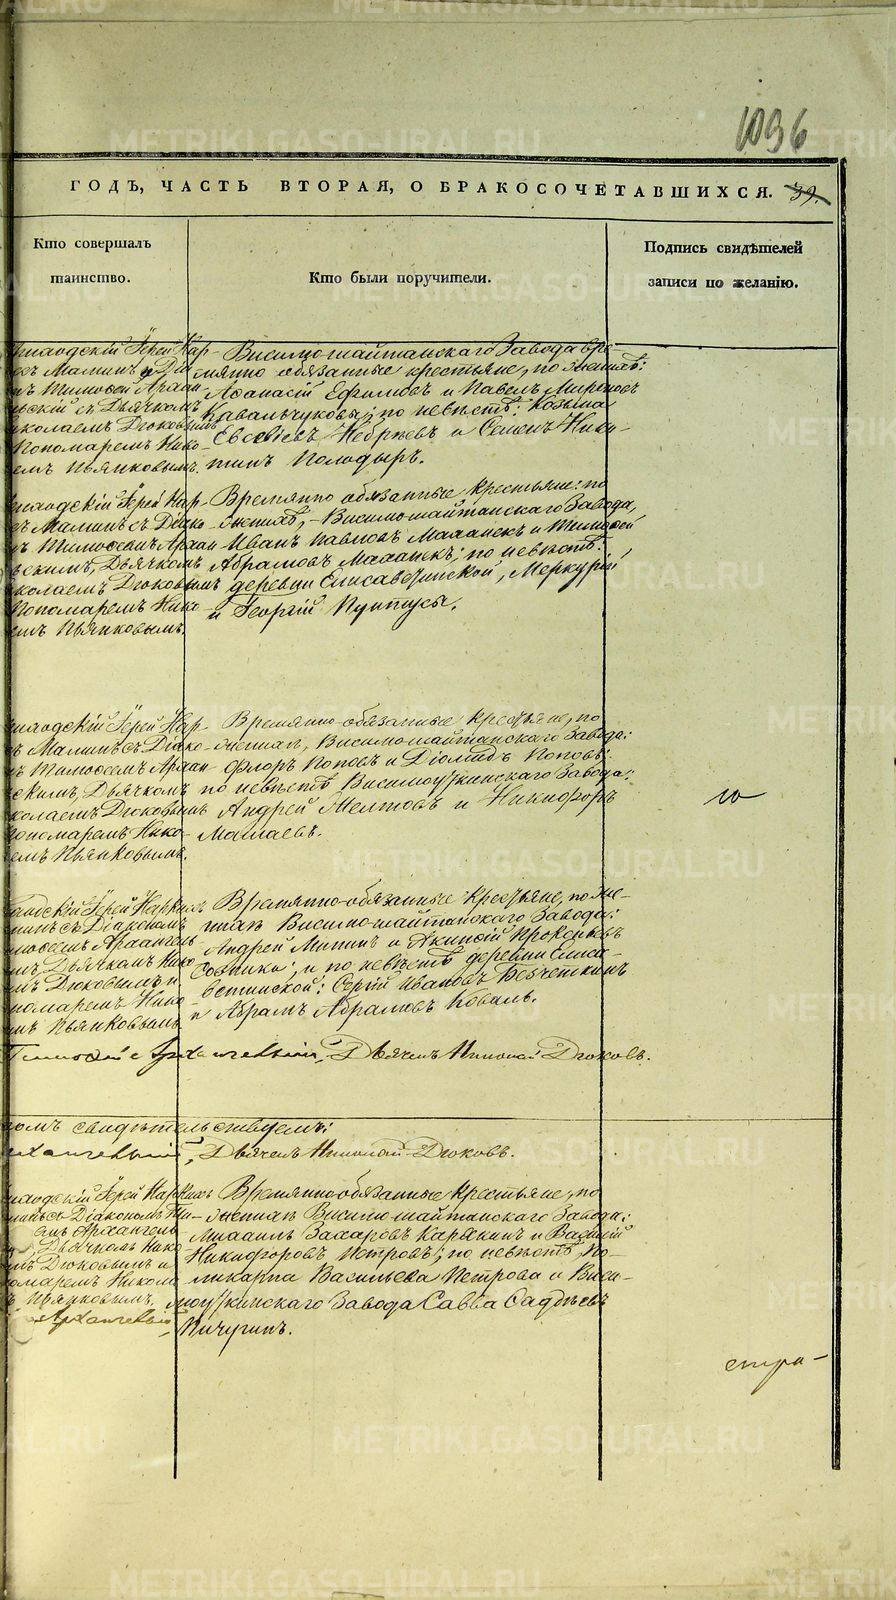 1096
ГОДЪ, ЧАСТЬ ВТОРАЯ, О БРАКОСОЧЕТАВШИХСЯ. 39.
Кто совершалъ таинство.
Кто были поручители.
Подпись свидѣтелей записи по желанію.
Іерей Нар-
Малинъ и Діа
Тимофей Архан
скій съ Дьячкомъ
колаемъ Дюковымъ
Пономаремъ Нико-
емъ Пьянковымъ.
Висимошайтанскаго Завода вре-
мянно обязанные крестьяне, по женихѣ:
Аѳанасій Ефимовъ и Павелъ Мироновъ
Кавальчуковы; по невѣстѣ: Козьма
Евсевіевъ Небрѣевъ и Семенъ Ники-
тинъ Полодыръ.
Іерей Нар-
Малинъ съ Діако-
Тимофеемъ Архан
скимъ, Дьячкомъ
колаемъ Дюковымъ
Пономаремъ Нико-
емъ Пьянковымъ.
Времянно обязанные крестьяне: по
женихѣ, Висимошайтанскаго Завода,
Иванъ Павловъ Маханекъ и Тимофей
Абрамовъ Маханекъ; по невѣстѣ:
деревни Елисаветинской, Меркурій
и Георгій Пунтусы.
Іерей Нар-
Малинъ съ Діако-
Тимофеемъ Архан
скимъ, Дьячкомъ
колаемъ Дюковымъ
Пономаремъ Нико-
емъ Пьянковымъ.
Времянно-обязанные крестьяне, по
женихѣ, Висимошайтанскаго Завода:
Флоръ Поповъ и Діомидъ Поповъ;
по невѣстѣ Висимоуткинскаго Завода:
Андрей Желтовъ и Никифоръ
Малаевъ.
ю
Іерей Наркисъ
линъ съ Діакономъ
мофеемъ Архангель
Дьячкомъ Нико
Дюковымъ и
номаремъ Нико-
Пьянковымъ
Времянно-обязанные крестьяне, по же-
нихѣ Висимошайтанскаго Завода:
Андрей Митинъ и Акинфій Прокопьевъ
Сотники; и по невѣстѣ деревни Елиса-
ветинской: Сергій Ивановъ Безчеткинъ
и Абрамъ Абрамовъ Коваль.
Тимофей Архангельскій, Дьячекъ Николай Дюковъ.
свидѣтельствуемъ:
Архангельскій, Дьячекъ Николай Дюковъ.
Іерей Наркисъ
съ Діакономъ Ти-
Архангель
Дьячкомъ Нико
Дюковымъ и
номаремъ Никола
Пьянковымъ.
Архангельскій
Времянно-обязанные крестьяне, по
женихѣ Висимошайтанскаго Завода:
Михаилъ Захаровъ Карякинъ и Василій
Никифоровъ Петровъ; по невѣстѣ, По-
ликарпа Васильева Петрова и Виси-
моуткинскаго Завода Савва
Пичугинъ.
стра-
METRIKI.GASO-URAL.RU